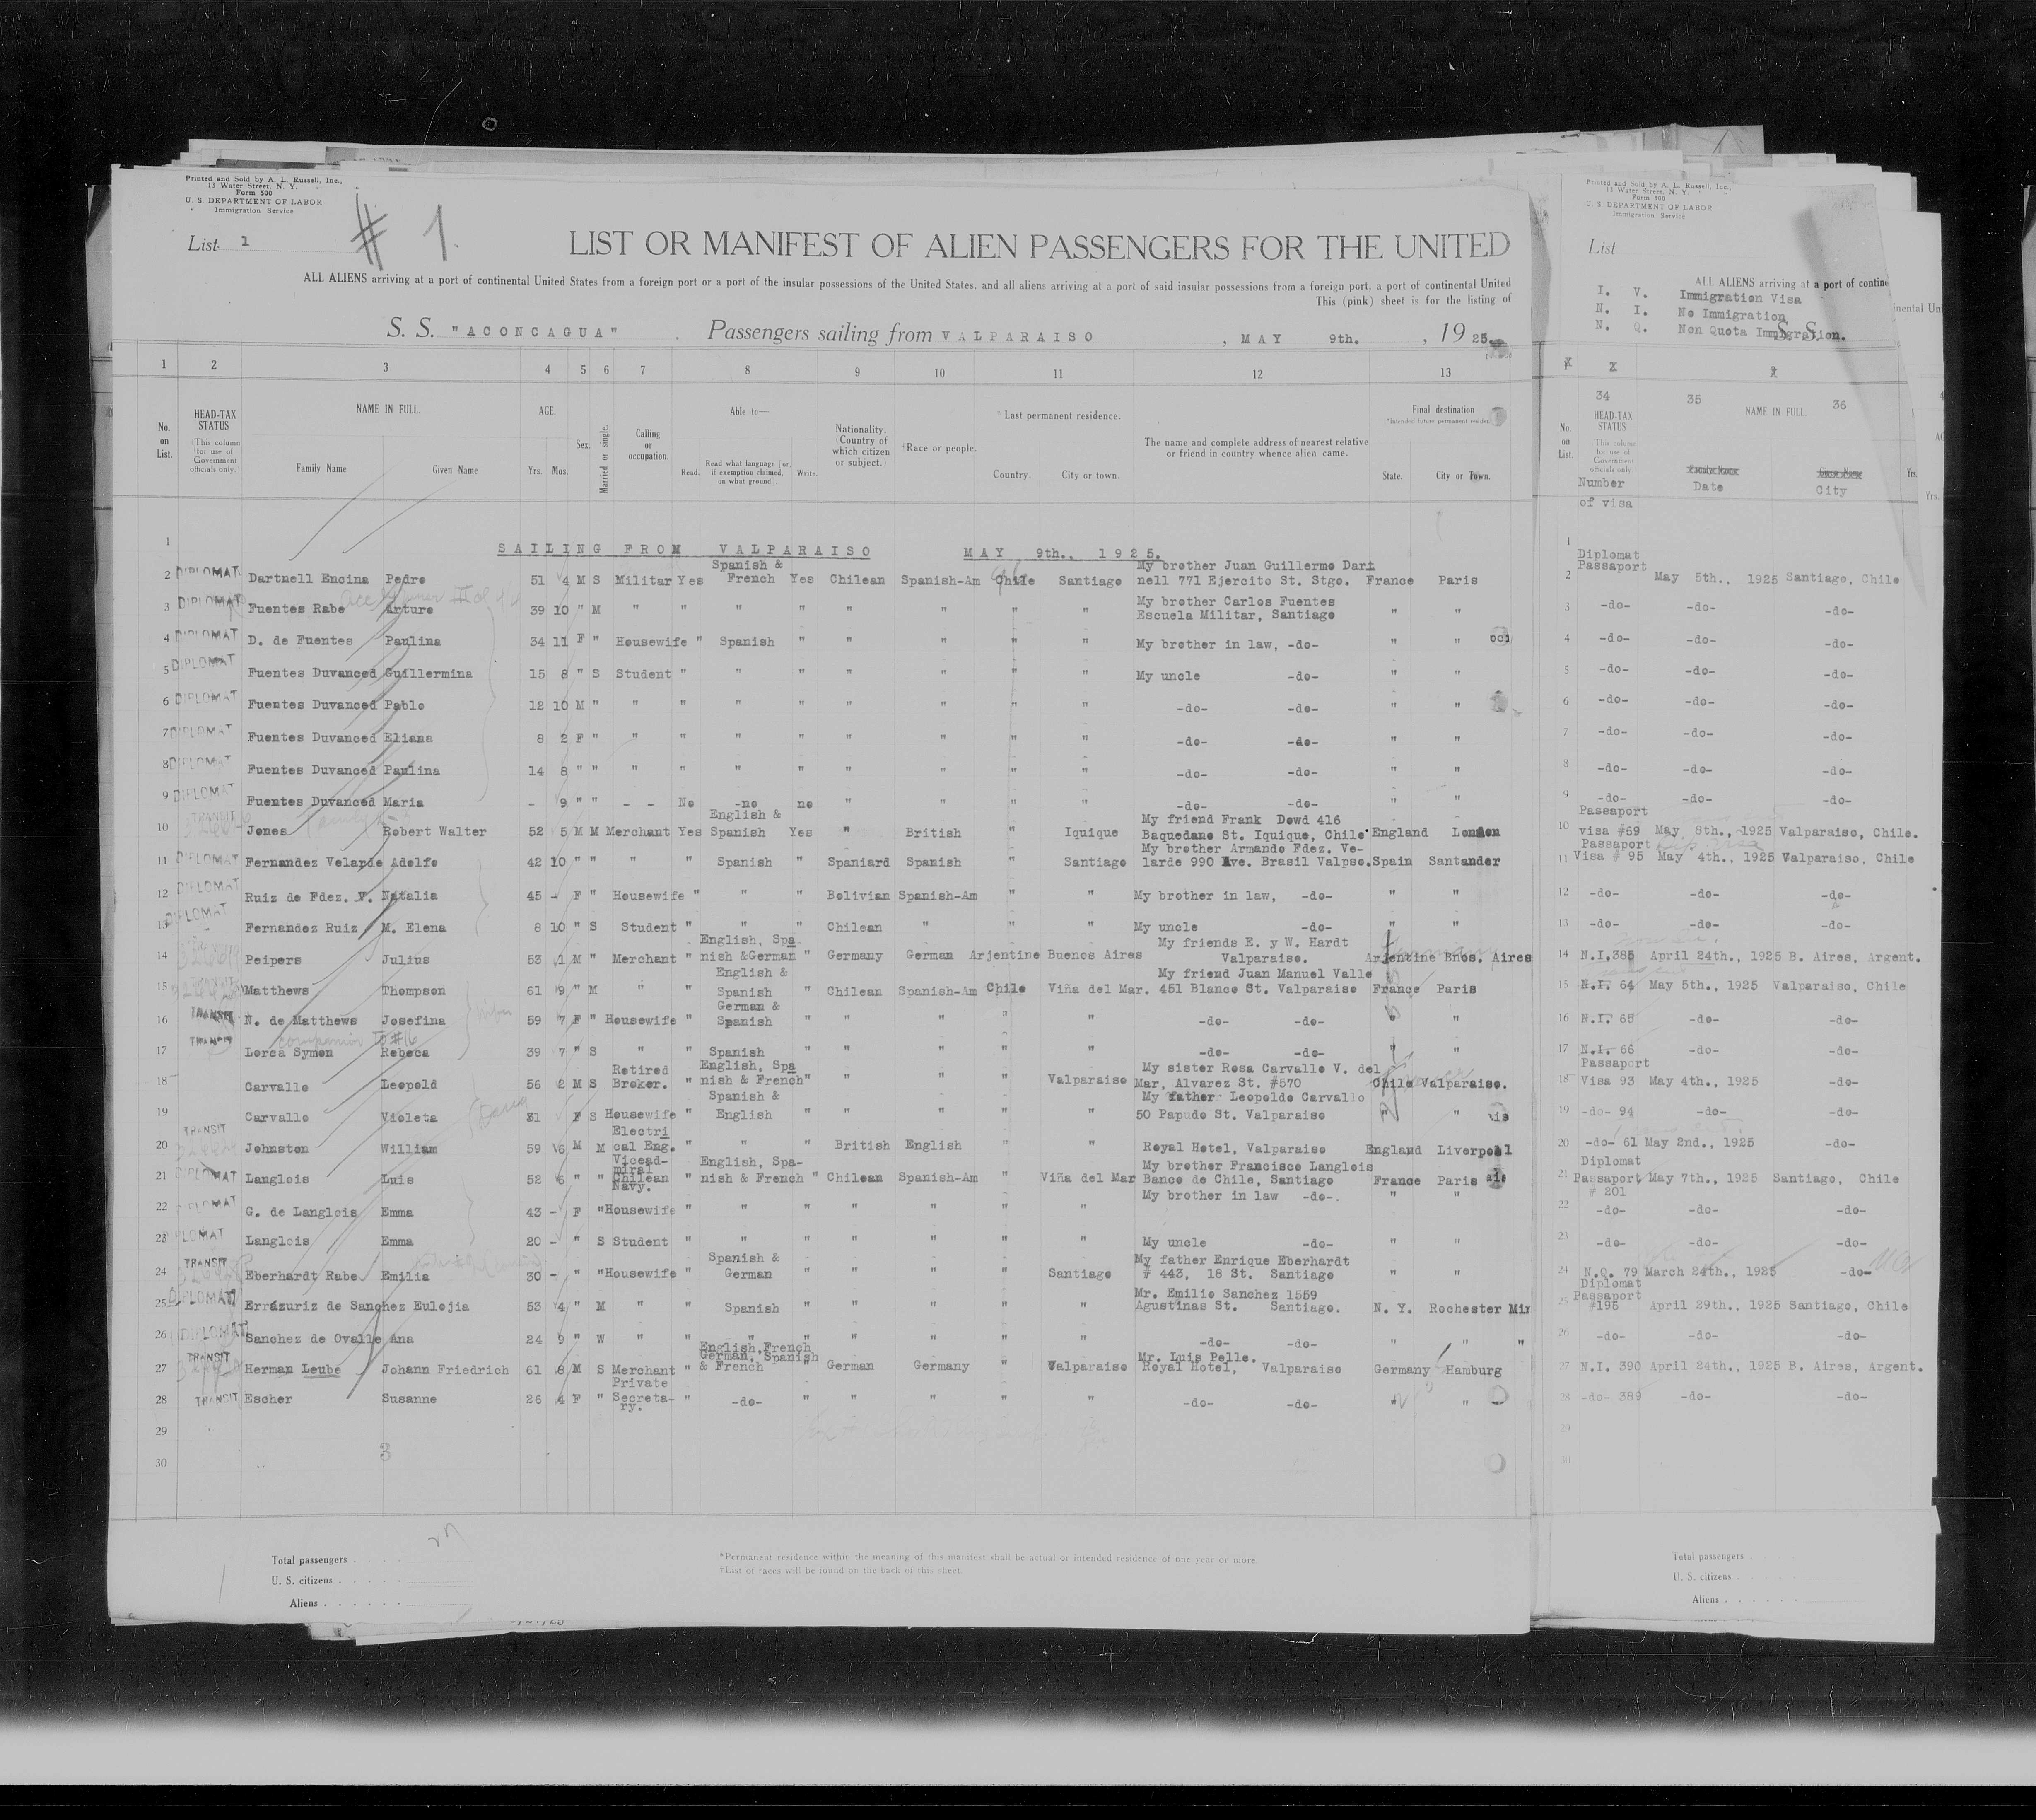 Printed and Sold by A. L. Russell, Inc.,
13 Water Street, N. Y.
Form 500
U. S. DEPARTMENT OF LABOR
Immigration Service
List 1
# 1.
LIST OR MANIFEST OF ALIEN PASSENGERS FOR THE UNITED
ALL ALIENS arriving at a port of continental United States from a foreign port or a port of the insular possessions of the United States, and all aliens arriving at a port of said insular possessions from a foreign port, a port of continental United
This (pink) sheet is for the listing of
S. S. "ACONCAGUA" Passengers sailing from VALPARAISO , MAY 9th. , 19 25.
1 2 3 4 5 6 7 8 9 10 11 12 13
No. on List.
HEAD-TAX STATUS (This column for use of Government officials only.)
NAME IN FULL. Family Name Given Name
AGE. Yrs. Mos.
Sex.
Married or single.
Calling or occupation.
Able to— Read. Read what language (or, if exemption claimed, on what ground). Write.
Nationality. (Country of which citizen or subject.)
†Race or people.
*Last permanent residence. Country. City or town.
The name and complete address of nearest relative or friend in country whence alien came.
Final destination *Intended future permanent residence State. City or Town.
1
SAILING FROM VALPARAISO MAY 9th., 1925.
2 DIPLOMAT Dartnell Encina Pedro 51 4 M S Militar Yes Spanish & French Yes Chilean Spanish-Am Chile Santiago My brother Juan Guillermo Dart nell 771 Ejercito St. Stgo. France Paris
3 DIPLOMAT Fuentes Rabe Arturo 39 10 " M " " " " " " " " My brother Carlos Fuentes Escuela Militar, Santiago " "
4 DIPLOMAT D. de Fuentes Paulina 34 11 F " Housewife " Spanish " " " " " My brother in law, -do- " "
5 DIPLOMAT Fuentes Duvanced Guillermina 15 8 " S Student " " " " " " " My uncle -do- " "
6 DIPLOMAT Fuentes Duvanced Pablo 12 10 M " " " " " " " " " -do- -do- " "
7 DIPLOMAT Fuentes Duvanced Eliana 8 2 F " " " " " " " " " -do- -do- " "
8 DIPLOMAT Fuentes Duvanced Paulina 14 8 " " " " " " " " " " -do- -do- " "
9 DIPLOMAT Fuentes Duvanced Maria - 9 " " - - No -no no " " " " -do- -do- " "
10 TRANSIT Jones Robert Walter 52 5 M M Merchant Yes English & Spanish Yes " British " Iquique My friend Frank Dowd 416 Baquedano St. Iquique, Chile England London
11 DIPLOMAT Fernandez Velarde Adolfo 42 10 " " " " Spanish " Spaniard Spanish " Santiago My brother Armando Fdez. Ve- larde 990 Ave. Brasil Valpso. Spain Santander
12 DIPLOMAT Ruiz de Fdez. V. Natalia 45 - F " Housewife " " " Bolivian Spanish-Am " " My brother in law, -do- " "
13 DIPLOMAT Fernandez Ruiz M. Elena 8 10 " S Student " " " Chilean " " " My uncle -do- " "
14 Peipers Julius 53 1 M " Merchant " English, Spa nish &German " Germany German Arjentine Buenos Aires My friends E. y W. Hardt Valparaiso. Arjentine Bnos. Aires
15 Matthews Thompson 61 9 " M " " English & Spanish " Chilean Spanish-Am Chile Viña del Mar. My friend Juan Manuel Valle 451 Blanco St. Valparaiso France Paris
16 TRANSIT N. de Matthews Josefina 59 7 F " Housewife " German & Spanish " " " " " -do- -do- " "
companion to #16
17 TRANSIT Lorca Symon Rebeca 39 7 " S " " Spanish " " " " " -do- -do- " "
18 Carvallo Leopold 56 2 M S Retired Broker. " English, Spa nish & French " " " " Valparaiso My sister Rosa Carvallo V. del Mar, Alvarez St. #570 Chile Valparaiso.
19 Carvallo Violeta 31 F S Housewife " Spanish & English " " " " " My father Leopoldo Carvallo 50 Papudo St. Valparaiso " "
20 TRANSIT Johnston William 59 6 M M Electri cal Eng. " " " British English " " Royal Hotel, Valparaiso England Liverpool
21 DIPLOMAT Langlois Luis 52 6 " " Vicead- miral Chilean Navy. " English, Spa- nish & French " Chilean Spanish-Am " Viña del Mar My brother Francisco Langlois Banco de Chile, Santiago France Paris
22 DIPLOMAT G. de Langlois Emma 43 - F " Housewife " " " " " " " My brother in law -do-. " "
23 DIPLOMAT Langlois Emma 20 - " S Student " " " " " " " My uncle -do- " "
24 TRANSIT Eberhardt Rabe Emilia 30 - " " Housewife " Spanish & German " " " " Santiago My father Enrique Eberhardt # 443, 18 St. Santiago " "
25 DIPLOMAT Errázuriz de Sanchez Eulojia 53 4 " M " " Spanish " " " " " Mr. Emilio Sanchez 1559 Agustinas St. Santiago. N. Y. Rochester Min
26 DIPLOMAT Sanchez de Ovalle Ana 24 9 " W " " " " " " " " -do- -do- " " "
27 TRANSIT Herman Leube Johann Friedrich 61 8 M S Merchant " English, French German, Spanish & French " German Germany " Valparaiso Mr. Luis Pelle. Royal Hotel, Valparaiso Germany Hamburg
28 TRANSIT Escher Susanne 26 4 F " Private Secreta- ry. " -do- " " " " " -do- -do- " "
29
30
3
Total passengers . . . .
U. S. citizens . . . . .
Aliens . . . . . .
*Permanent residence within the meaning of this manifest shall be actual or intended residence of one year or more.
†List of races will be found on the back of this sheet.
Printed and Sold by A. L. Russell, Inc.,
13 Water Street, N. Y.
Form 500
U. S. DEPARTMENT OF LABOR
Immigration Service
List
ALL ALIENS arriving at a port of contine
I. V. Immigration Visa
N. I. No Immigration
N. Q. Non Quota Immigration.
S. S.
34 35 36
No. on List.
HEAD-TAX STATUS (This column for use of Government officials only)
NAME IN FULL.
Number of visa Date City
1
2 Diplomat Passport May 5th., 1925 Santiago, Chile
3 -do- -do- -do-
4 -do- -do- -do-
5 -do- -do- -do-
6 -do- -do- -do-
7 -do- -do- -do-
8 -do- -do- -do-
9 -do- -do- -do-
10 Passaport visa #69 May 8th., 1925 Valparaiso, Chile.
11 Passaport Visa # 95 May 4th., 1925 Valparaiso, Chile
12 -do- -do- -do-
13 -do- -do- -do-
14 N.I.385 April 24th., 1925 B. Aires, Argent.
15 N.I. 64 May 5th., 1925 Valparaiso, Chile
16 N.I. 65 -do- -do-
17 N.I. 66 -do- -do-
18 Passaport Visa 93 May 4th., 1925 -do-
19 -do- 94 -do- -do-
20 -do- 61 May 2nd., 1925 -do-
21 Diplomat Passaport # 201 May 7th., 1925 Santiago, Chile
22 -do- -do- -do-
23 -do- -do- -do-
24 N.Q. 79 March 24th., 1925 -do-
25 Diplomat Passaport #195 April 29th., 1925 Santiago, Chile
26 -do- -do- -do-
27 N.I. 390 April 24th., 1925 B. Aires, Argent.
28 -do- 389 -do- -do-
29
30
Total passengers .
U. S. citizens . . . . .
Aliens . . . . . .